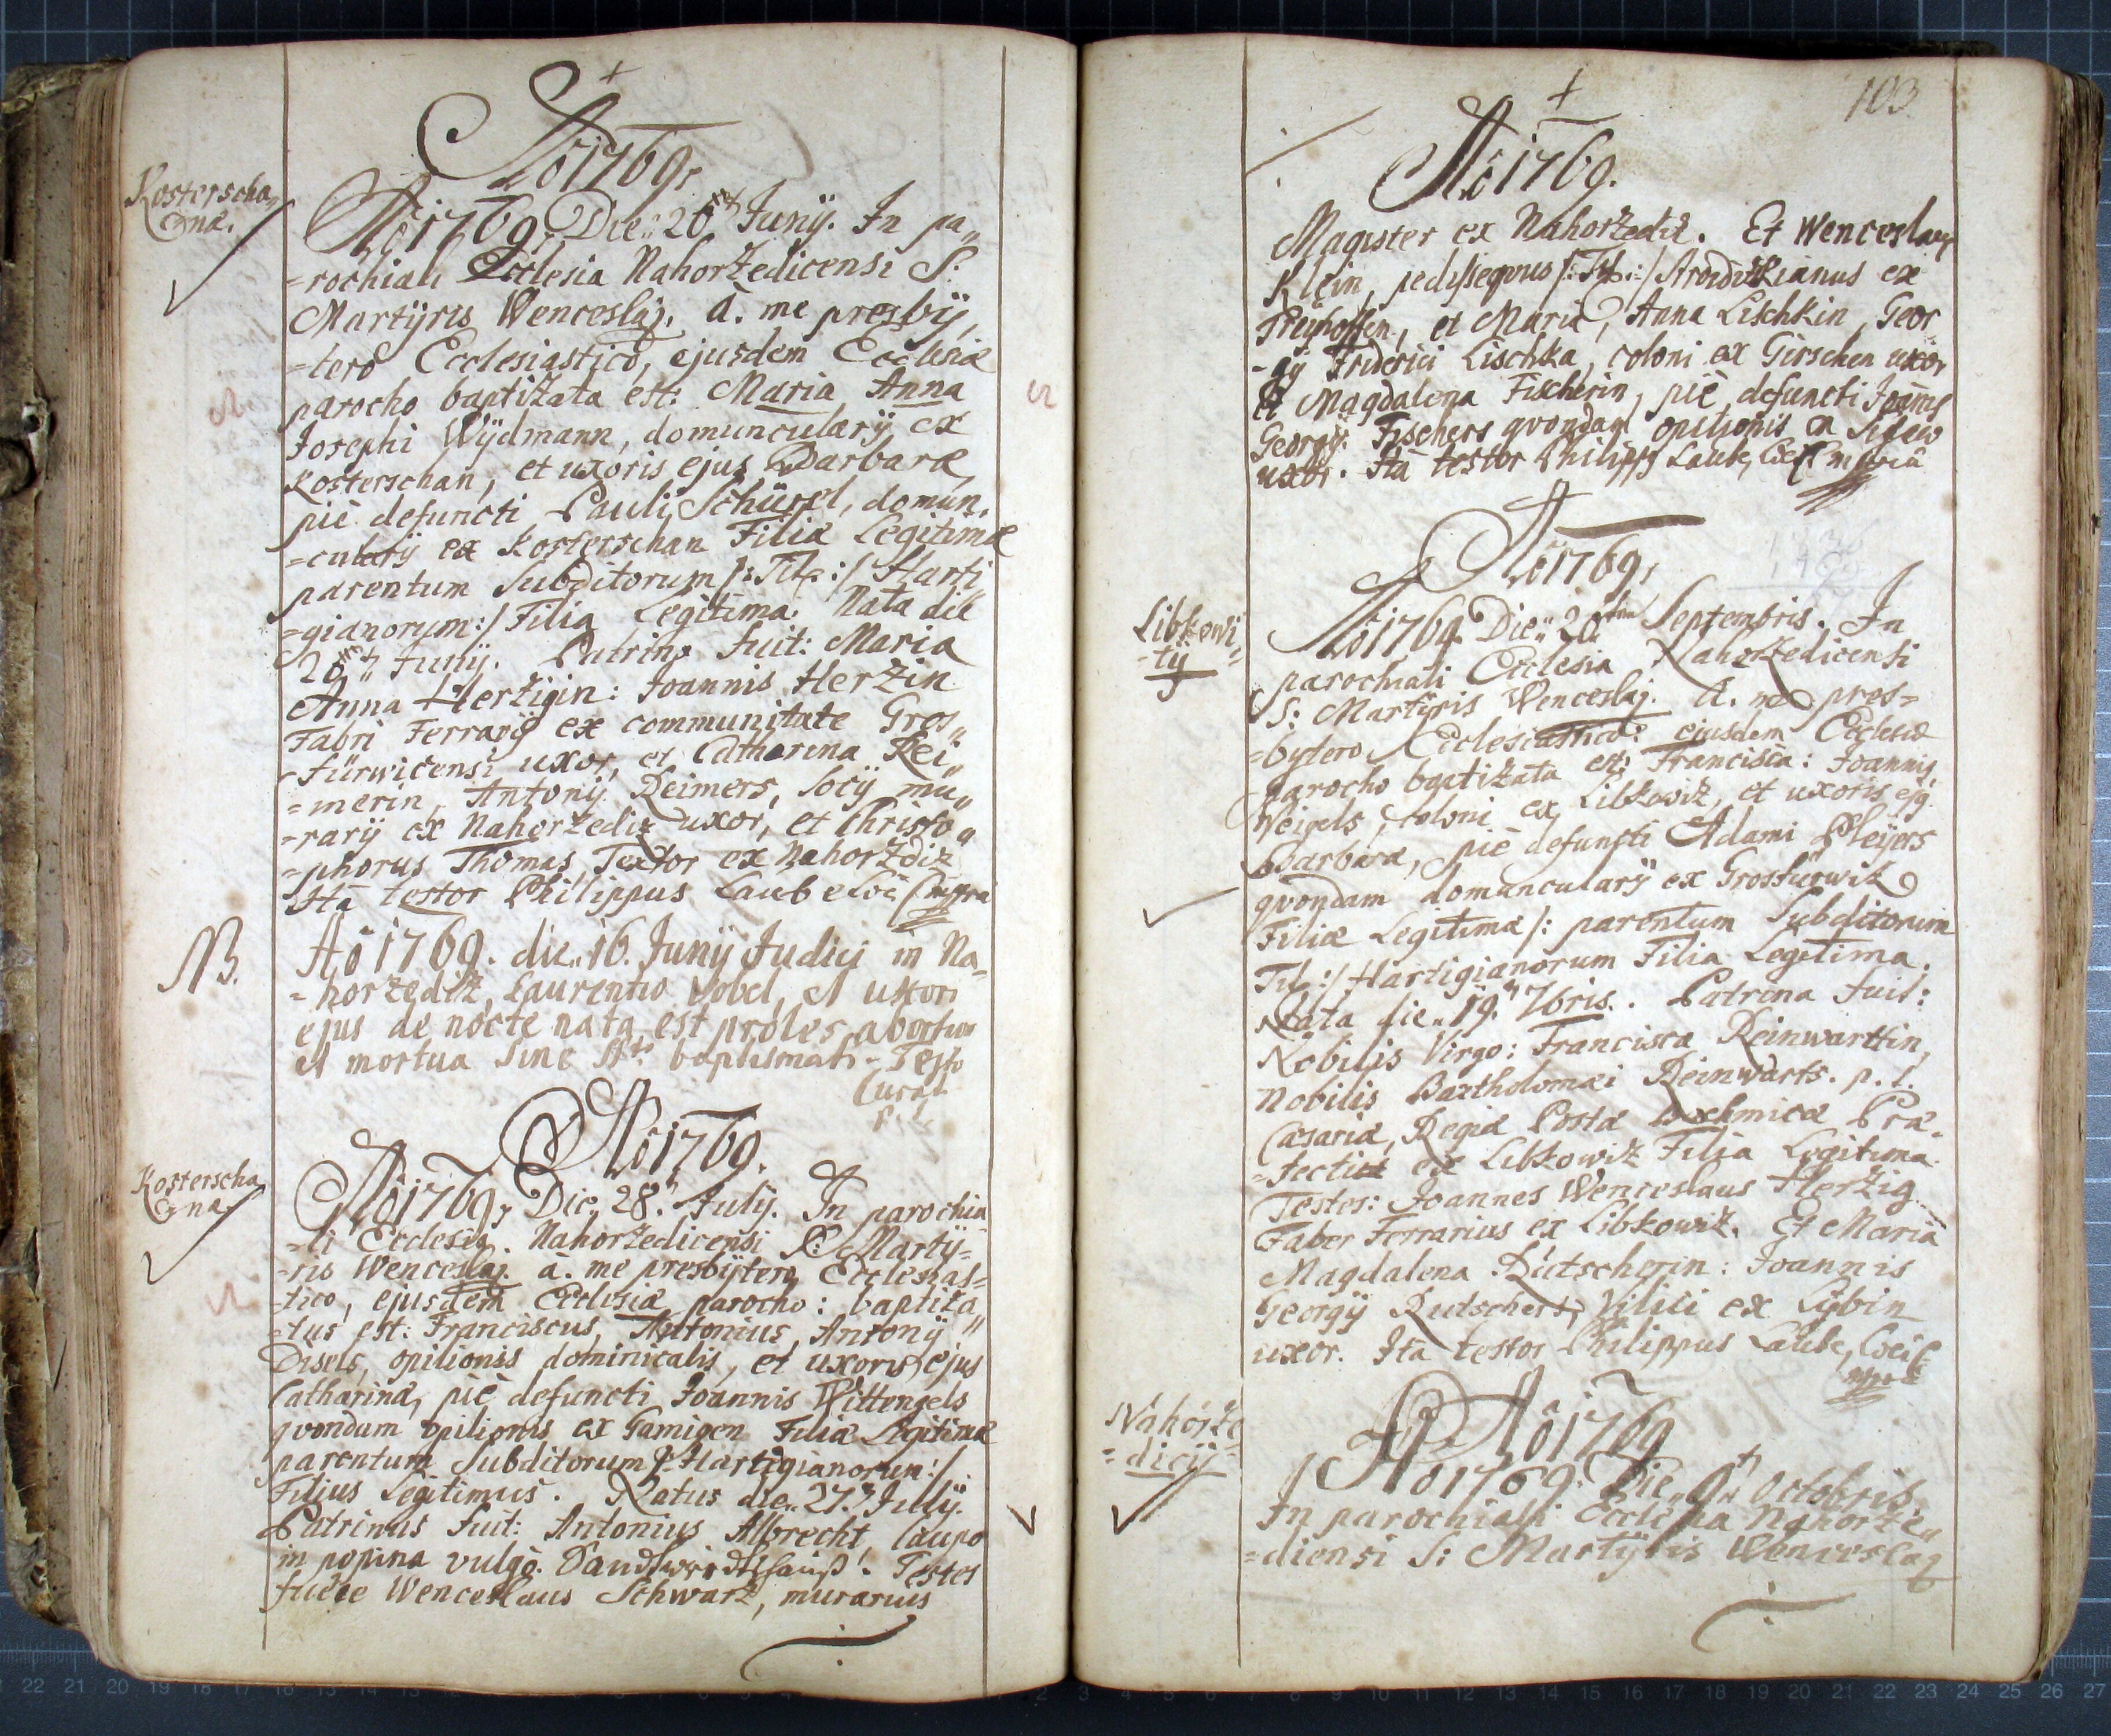 +
Aõ 1769,
Kosterscha„
„næ.
Aõ 1769, Die„ 20 Junÿ. In pa„
=rochiali Ecclesia Nahoržedicensi S:
Martÿris Wenceslaj. à. me presbÿ„
=tero Ecclesiastico, ejusdem Ecclesiæ
parocho baptižata est: Maria Anna
Josephi Wÿdmann, domuncularÿ ex
Kosterschan, et uxoris ejus Barbaræ,
piè defuncti Pauli Schürsl, domun„
=cularÿ ex Kosterschan Filiæ Legitimæ
parentum Subditorum /: Tit: :/ Harti„
=gianorum :/ Filia Legitima. Nata die
20 Junÿ. Patrina Fuit: Maria
Anna Heržigin: Joannis Heržin
Fabri Ferrarÿ ex communitate Gros„
=fürwicensi uxor, et Catharina Rei„
=merin, Antonÿ Reimers, Socÿ mu„
=rarÿ ex Nahoržediž uxor, et Christo„
=phorus Thomas, Textor ex Nahorždiž
Ità testor Philippus Laube Loci C mpria
NB.
Aõ 1769. die„ 16. Junÿ Judici in Na„
=horžediž, Laurentio Vobel, et uxori
ejus de nocte nata est próles abortiva
et mortua sine Sto baptismati- Testor
Curat
p. l.
Aõ 1769.
Kosterscha„
„næ.
Aõ 1769, Die„ 28. Julÿ. In parochia„
=li Ecclesia Nahoržedicensi S: Martÿ=
=ris Wenceslaj. a. me presbÿtero Ecclesias=
=tico, ejusdem Ecclesiæ parocho: baptiža„
=tus est: Franciscus, Antonius, Antonÿ
Disels, opilionis dominicalis, et uxoris ejus
Catharinæ, piè defuncti Joannis Wittengels
qvondam opilionis ex Gamigen Filiæ Legitimæ
parentum Subditorum /: Hartigianorum :/
Filius Legitimus. Natus die„ 27. Julÿ.
Patrinus Fuit: Antonius Albrecht, Caupo
in popina vulgò. Testes
Fuere Wenceslaus Schwarž, murarius
103.
+
Aõ 1769.
Magister ex Nahoržediž. Et Wenceslaus
Klein, pedissequus /: Tit: :/ ex
Preyhoffen, et Maria, Anna Lischkin, Geor
=gÿ Friderici Lischka, coloni ex Girschen uxor
et Magdalena Fischerin, piè defuncti Joannis
Georgÿ Fischers qvondam opilionis ex
uxor. Ità testor Philippus Laube, Loci C mpria
Aõ 1769,
Libkowi„
=tÿ
Aõ 1769 Die„ 20 Septembris. In
parochiali Ecclesia Nahoržedicensi
S: Martÿris Wenceslaj. à. me pres=
=bytero Ecclesiastico: ejusdem Ecclesiæ
parocho baptižata est: Francisca: Joannis,
Weigels, Coloni ex Libkowiž, et uxoris ej9
Barbaræ, piè defuncti Adami Pleÿers
qvondam domuncularÿ ex Grosfürwiž
Filiæ Legitimæ /: parentum Subditorum
Tit: :/ Hartigianorum Filia Legitima.
Nata die„ 19. 7bris. Patrina Fuit:
Nobilis Virgo: Francisca Reinwarttin,
Nobilis Bartholomæi Reinwarts. p. t.
Cæsariæ, Regiæ Postæ Præ„
=fecti ex Libkowiž Filia Legitima
Testes: Joannes Wenceslaus Heržig
Faber Ferrarius ex Libkowiž. Et Maria
Magdalena Rutscherin: Joannis
Georgÿ Rutscher, Vilici ex Lÿbin
uxor. Ità testor Philippus Laube, Loci C
mpria
Aõ 1769
Nahórže
=dicÿ
Aõ 1769. Die„ 9„ Octobris.
In parochiali Ecclesia Nahorže„
=diensi S: Martÿris Wenceslaj